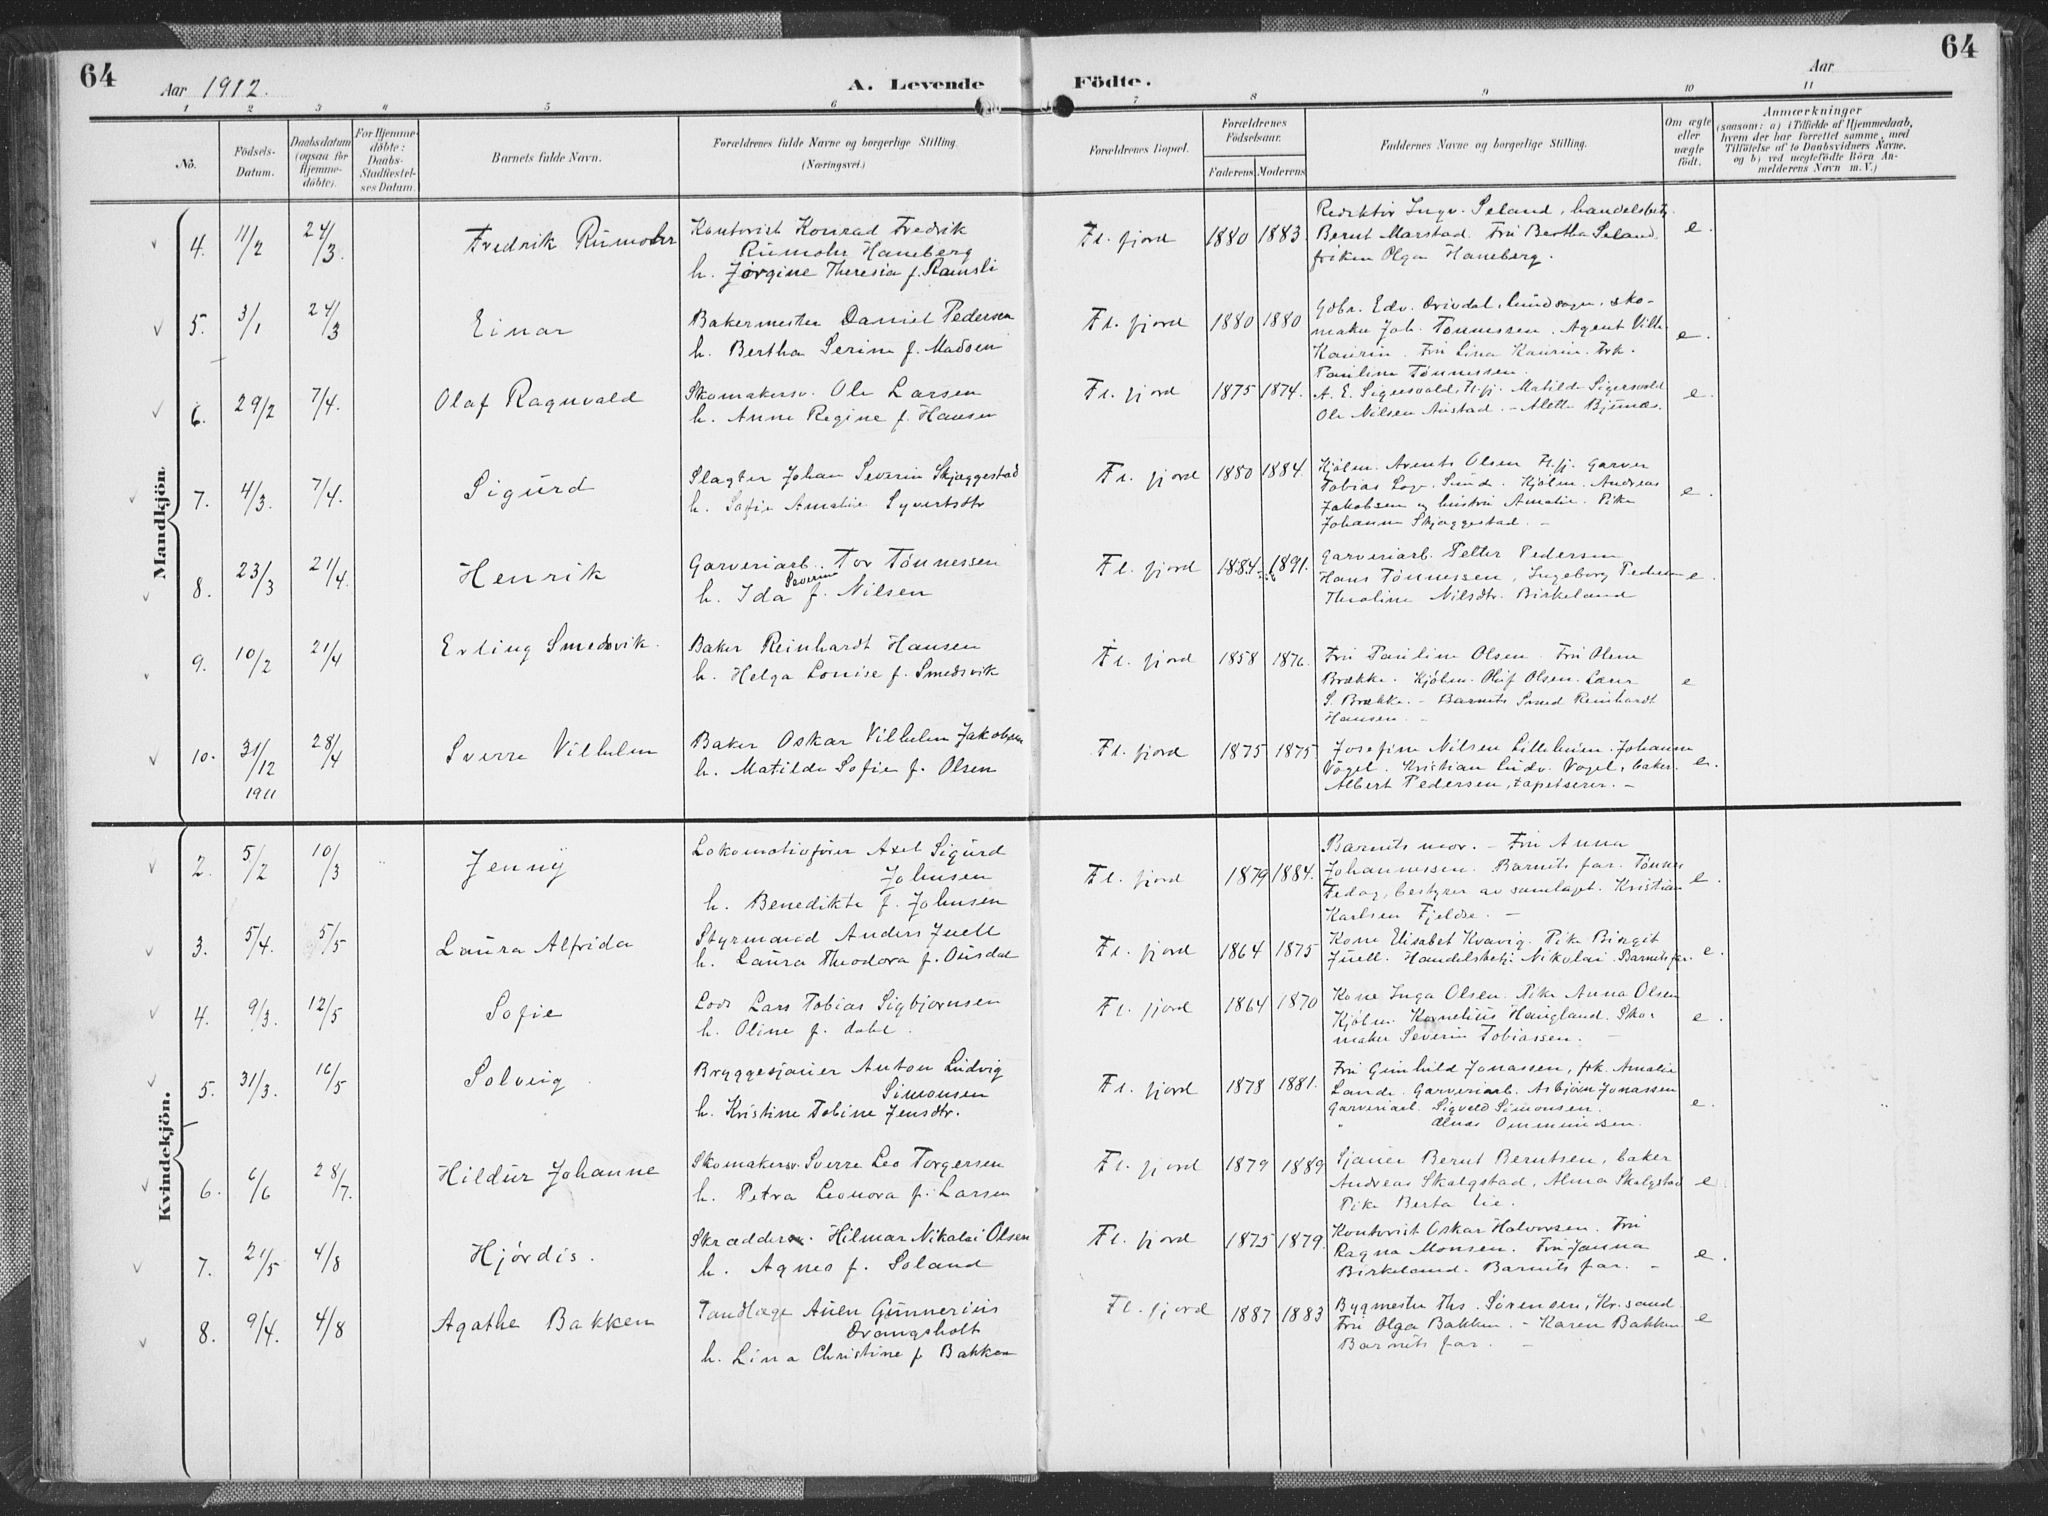 64
64
Aar 1912.
A. Levende
Födte.
Aar
1 2 3 4 5 6 7 8 9 10 11
No.
Födsels-
Datum.
Daabsdatum
(ogsaa for
Hjemme-
döbte).
For Hjemme-
döbte:
Daabs-
Stadfæstel-
ses Datum.
Barnets fulde Navn.
Forældrenes fulde Navne og borgerlige Stilling.
(Næringsvei.)
Forældrenes Bopæl.
Forældrenes
Födselsaar.
Faderens Moderens
Faddernes Navne og borgerlige Stilling.
Om ægte
eller
uægte
födt.
Anmærkninger
(saasom: a) i Tilfælde af Hjemmedaab,
hvem der har forrettet samme, med
Tilföielse af to Daabsvidners Navne,
og b) ved uægtefödte Börn An-
melderens Navn m. V.)
Mandkjön.
4. 11/2 24/3. Fredrik Rumohr
Kontorist Konrad Fredrik
Rumohr Haneberg
h. Jørgine Theresia f. Ramsli
Fl. fjord 1880 1883.
Redaktør Ingv. Seland, handelsbetj.
Bernt Marstad. Fru Bertha Seland
frøken Olga Haneberg.
e.
5. 3/1 24/3 Einar
Bakermester Daniel Pedersen
h. Bertha Serine f. Madsen
Fl. fjord 1880 1880
Gdbr. Edv. Drivdal, Lundsogn, sko-
maker Joh. Tønnessen. Agent Vilh.
Kaurin. Fru Lina Kaurin. Frk.
Pauline Tønnessen.
e.
6. 29/2 7/4. Olaf Ragnvald
Skomakersv. Ole Larsen
h. Anne Regine f. Hansen
Fl. fjord 1875 1874.
A. E. Sigersvold, Fl.fj. Matilde Sigersvold
Ole Nilsen Austad. - Alette Bjurnæs.
e.
7. 4/3. 7/4. Sigurd
Slagter Johan Severin Skjæggestad
h. Sofie Amalie Syvertsdtr
Fl. fjord 1880 1884.
Kjølm. Arents Olsen Fl.fj. Garver
Tobias Loge. Sund. Kjølm. Andreas
Jakobsen og hustru Amalie. Pike
Johanne Skjæggestad. -
e.
8. 23/3 21/4. Henrik
Garveriarb. Tor Tønnessen
h. Ida Severine f. Nilsen
Fl. fjord 1884. 1891.
Garveriarb. Petter Pedersen
Hans Tønnessen, Ingeborg Pedersen
Theoline Nilsdtr. Birkeland
e.
9. 10/2 21/4 Erling Smedsvik.
Baker Reinhardt Hansen
h. Helga Louise f. Smedsvik
Fl. fjord 1858 1876.
Fru Pauline Olsen. Fru Olene
Brække. Kjøbm. Oluf Olsen. Lærer
S. Brække. - Barnets Smed Reinhardt
Hansen. -
e
10. 31/12 1911 28/4 Sverre Vilhelm
Baker Oskar Vilhelm Jakobsen
h. Matilde Sofie f. Olsen
Fl. fjord 1875 1875
Josefine Nilsen Lilleheien. Johanne
Vogel. Kristian Ludv. Vogel, baker.
Albert Pedersen, tapetserer. -
e.
Kvindekjön.
2. 5/2 10/3 Jenny
Lokomotivfører Axel Sigurd
Johnsen
h. Benedikte f. Johnsen
Fl. fjord 1879 1884.
Barnets mor. - Fru Anna
Johannessen. Barnets far. Tønnes
Fedog, bestyrer av samlaget. Kristian
Karlsen Fjeldse. -
e.
3. 5/4. 5/5 Laura Alfrida
Styrmand Anders Juell
h. Laura Theodora f. Ousdal
Fl. fjord 1864 1875
Kone Elisabet Kvavig. Pike Birgit
Juell. Handelsbetj. Nikolai. Barnets far.
e.
4. 9/3. 12/5 Sofie
Lods Lars Tobias Sigbjørnsen
h. Oline f. dahl.
Fl. fjord 1864 1870
Kone Inga Olsen. Pike Anna Olsen
Kjøbm. Kornelius Haugland. Sko-
maker Severin Tobiassen. -
e.
5. 31/3. 16/5 Solveig.
Bryggesjauer Anton Ludvig
Simonsen
h. Kristine Tobine Jensdtr.
Fl. fjord 1878 1881.
Fru Gunhild Jonassen, frk. Amalie
Lande. Garveriarb. Asbjørn Jonassen
Garveriarb. Sigvald Simonsen.
" Ommundsen.
e.
6. 6/6 28/7. Hildur Johanne
Skomakersv. Sverre Leo Torgersen
h. Petra Leonora f. Larsen
Fl. fjord 1879 1889
Sjauer Bernt Berntsen, baker
Andreas Skalgstad, Alma Skalgstad
Pike Berta Lie.
e.
7. 21/5 4/8 Hjørdis.
Skræddersv. Hilmar Nikolai Olsen
h. Agnes f. Soland
Fl. fjord 1875 1879.
Kontorist Oskar Halvorsen. Fru
Ragna Monsen. Fru Janna
Birkeland. Barnets far. -
e.
8. 9/4. 4/8 Agathe Bakken
Tandlæge Auen Gunnerius
Drangsholt
h. Lina Christine f Bakken
Fl. fjord 1887 1883
Bygmester Ths. Sørensen, Kr.sand.
Fru Olga Bakken. - Karen Bakken
Barnets far. -
e